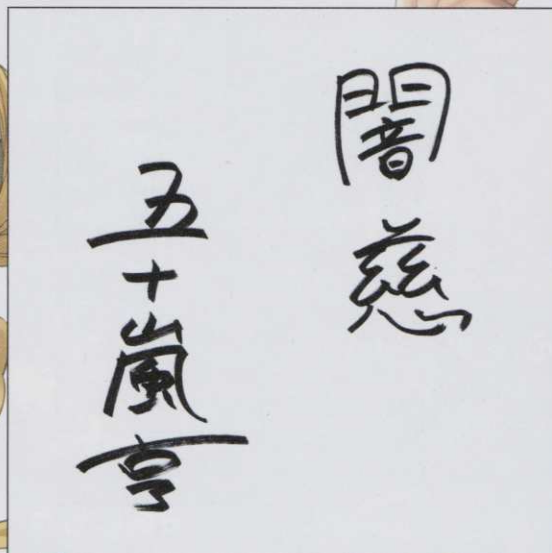 闇慈
五十嵐亨